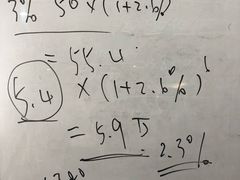 3% 50×(1+2.6%)
= 55.4
5.4 ×(1+2.6%)
= 5.9万
2.3%